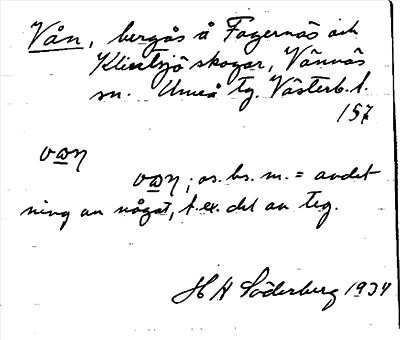 Vån, bergås å Fagernäs och
Klintsjö skogar, Vännäs
sn. Umeå tg. Västerb. l.
157
vωη
vωη; os. bs. m. = avdel
ning av något, t. ex. del av teg.
H A Söderberg 1934